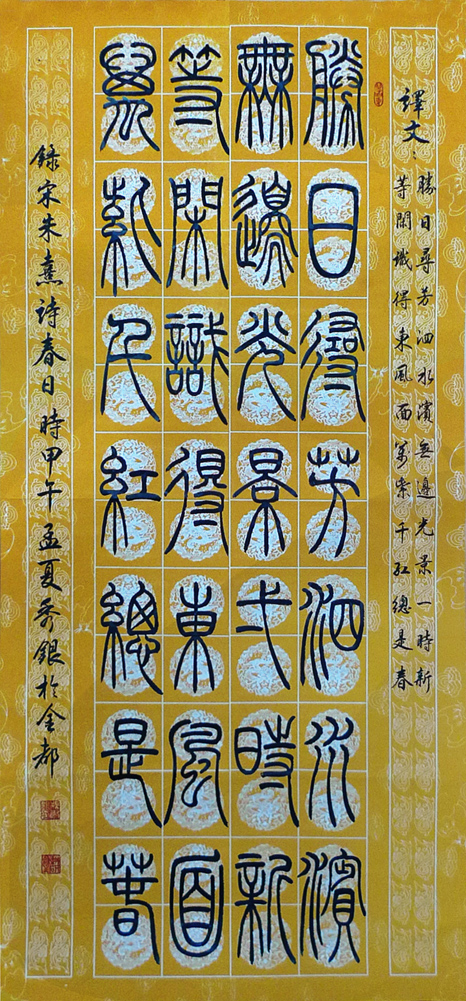 繹文：
勝日尋芳泗水濱無邊光景一時新
等閑識得東風面萬紫千紅總是春
勝日尋芳泗水濱
無邊光景弌時新
等閑識得東風面
萬紫千紅總是春
錄宋朱熹詩春日時甲午孟夏秀銀於金都